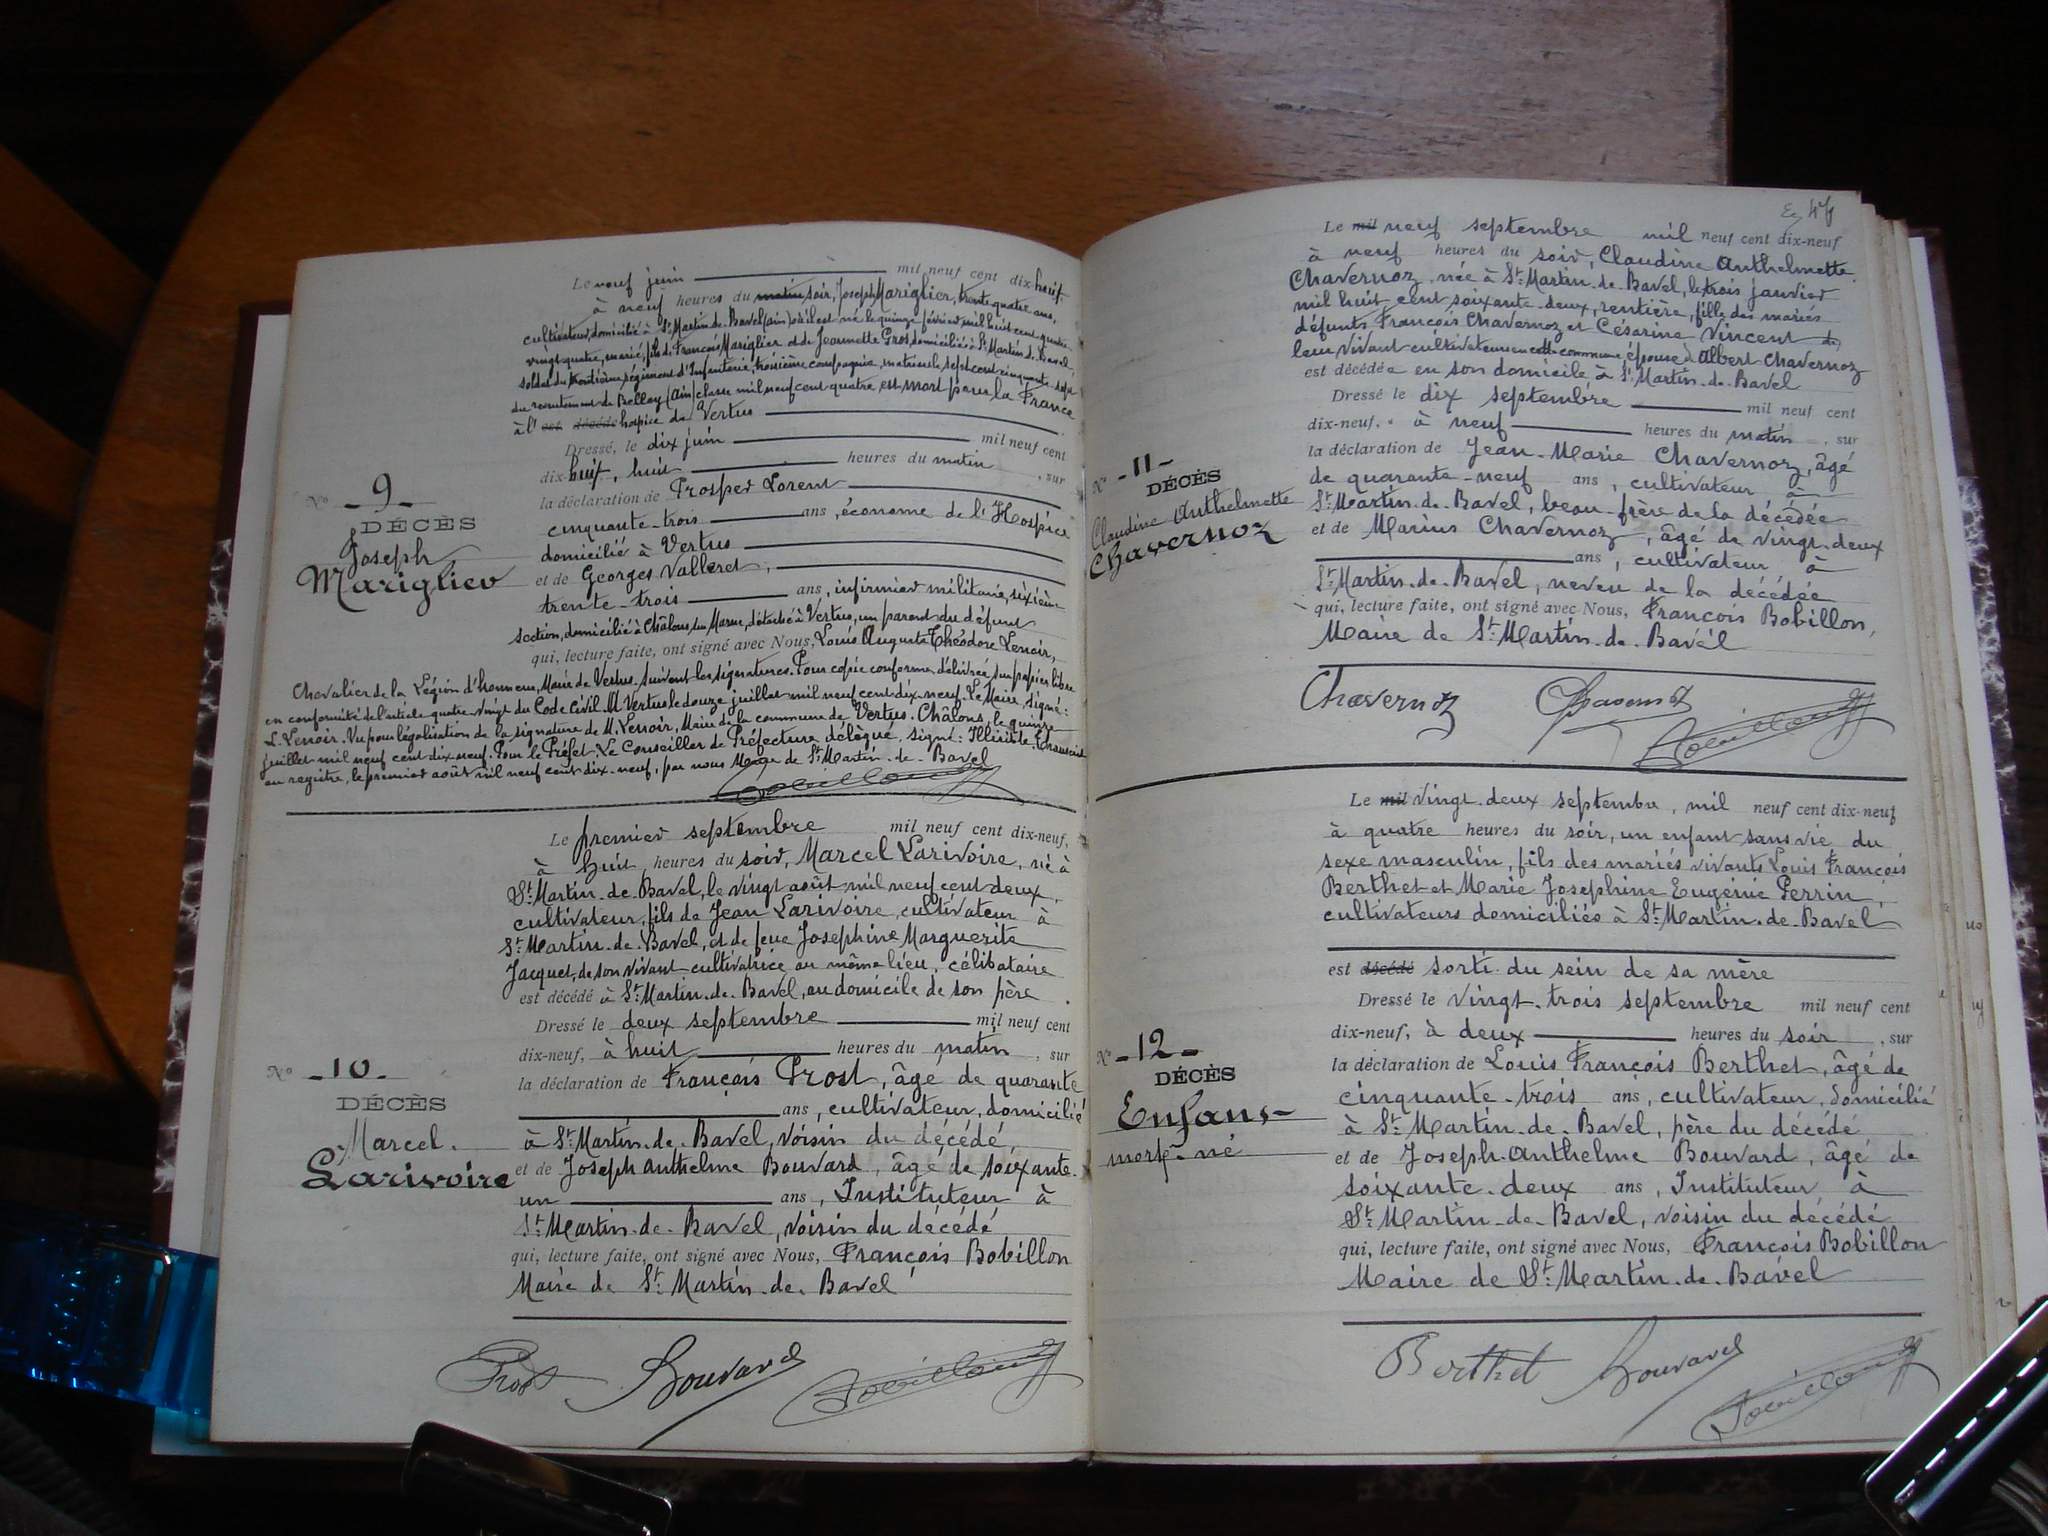 Le neuf juin mil neuf cent dix-huit
à neuf heures du matin soir, Joseph Mariglier, trente quatre ans,
cultivateur, domicilié à St Martin-de-Bavel (Ain) où il est né le quinze février mil huit cent quatre-
vingt-quatre, marié, fils de François Mariglier et de Jeannette Gros, domiciliés à St Martin-de-Bavel,
soldat du régiment d'Infanterie, troisième compagnie, matricule sept cent cinquante-sept
du recrutement de Belley (Ain) classe mil neuf cent quatre, est mort pour la France
à l' est décédé hospice de Vertus
Dressé, le dix juin mil neuf cent
dix-huit, huit heures du matin, sur
la déclaration de Prosper Lorent
cinquante-trois ans, économe de l'Hospice
domicilié à Vertus
et de Georges Valleret,
trente-trois ans, infirmier militaire, sixième
section, domicilié à Châlons sur Marne, détaché à Vertus, un parent du défunt
qui, lecture faite, ont signé avec Nous, Louis Auguste Théodore Lenoir,
Chevalier de la Légion d'honneur, Maire de Vertus. Suivent les signatures. Pour copie conforme délivrée sur papier libre
en conformité de l'article quatre-vingt du Code Civil. A Vertus le douze juillet mil neuf cent dix-neuf. Le Maire, signé:
L. Lenoir. Vu pour légalisation de la signature de M. Lenoir, Maire de la commune de Vertus. Châlons, le quinze
juillet mil neuf cent dix-neuf. Pour le Préfet. Le Conseiller de Préfecture délégué, signé:
au registre, le premier août mil neuf cent dix-neuf, par nous Maire de St Martin-de-Bavel
Bobillon
No -9-
DÉCÈS
Joseph
Mariglier
Le premier septembre mil neuf cent dix-neuf,
à huit heures du soir, Marcel Larivoire, né à
St Martin-de-Bavel, le vingt août mil neuf cent deux,
cultivateur, fils de Jean Larivoire, cultivateur à
St Martin-de-Bavel, et de feue Josephine Marguerite
Jacquet, de son vivant cultivatrice au même lieu, célibataire
est décédé à St Martin-de-Bavel, au domicile de son père
Dressé le deux septembre mil neuf cent
dix-neuf, à huit heures du matin, sur
la déclaration de François Prost, âgé de quarante
ans, cultivateur, domicilié
à St Martin-de-Bavel, voisin du décédé,
et de Joseph Anthelme Bouvard, âgé de soixante-
un ans, Instituteur à
St Martin-de-Bavel, voisin du décédé
qui, lecture faite, ont signé avec Nous, François Bobillon
Maire de St Martin-de-Bavel
Prost Bouvard Bobillon
No -10-
DÉCÈS
Marcel
Larivoire
Le mil neuf septembre mil neuf cent dix-neuf
à neuf heures du soir, Claudine Anthelmette
Chavernoz, née à St Martin-de-Bavel, le trois janvier
mil huit cent soixante-deux, rentière, fille des mariés
défunts François Chavernoz et Césarine Vincent de
leur vivant cultivateurs en cette commune, épouse d'Albert Chavernoz
est décédée en son domicile à St Martin-de-Bavel
Dressé le dix septembre mil neuf cent
dix-neuf, à neuf heures du matin, sur
la déclaration de Jean-Marie Chavernoz, âgé
de quarante-neuf ans, cultivateur à
St Martin-de-Bavel, beau-frère de la décédée
et de Marius Chavernoz, âgé de vingt-deux
ans, cultivateur à
St Martin-de-Bavel, neveu de la décédée
qui, lecture faite, ont signé avec Nous, François Bobillon,
Maire de St Martin-de-Bavel
Chavernoz Chavernoz Bobillon
No -11-
DÉCÈS
Claudine Anthelmette
Chavernoz
Le mil vingt-deux septembre, mil neuf cent dix-neuf
à quatre heures du soir, un enfant sans vie du
sexe masculin, fils des mariés vivants Louis François
Berthet et Marie Josephine Eugénie Perrin,
cultivateurs domiciliés à St Martin-de-Bavel
est décédé sorti du sein de sa mère
Dressé le vingt-trois septembre mil neuf cent
dix-neuf, à deux heures du soir, sur
la déclaration de Louis François Berthet, âgé de
cinquante-trois ans, cultivateur, domicilié
à St Martin-de-Bavel, père du décédé
et de Joseph-Anthelme Bouvard, âgé de
soixante-deux ans, Instituteur à
St Martin-de-Bavel, voisin du décédé
qui, lecture faite, ont signé avec Nous, François Bobillon
Maire de St Martin-de-Bavel
Berthet Bouvard Bobillon
No -12-
DÉCÈS
Enfant
mort-né